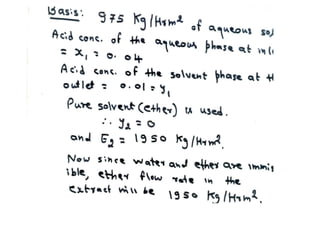 Basis: 975 Kg/Hrm² of aqueous
Acid conc. of the aqueous phase at
= x₁ = 0.04
Acid conc. of the solvent phase at
outlet = 0.01 = y₁
Pure solvent (ether) is used.
∴ y₂ = 0
and E₂ = 1950 Kg/Hrm².
Now since water and ether are immis
ible, ether flow rate in the
extract will be 1950 Kg/Hrm².